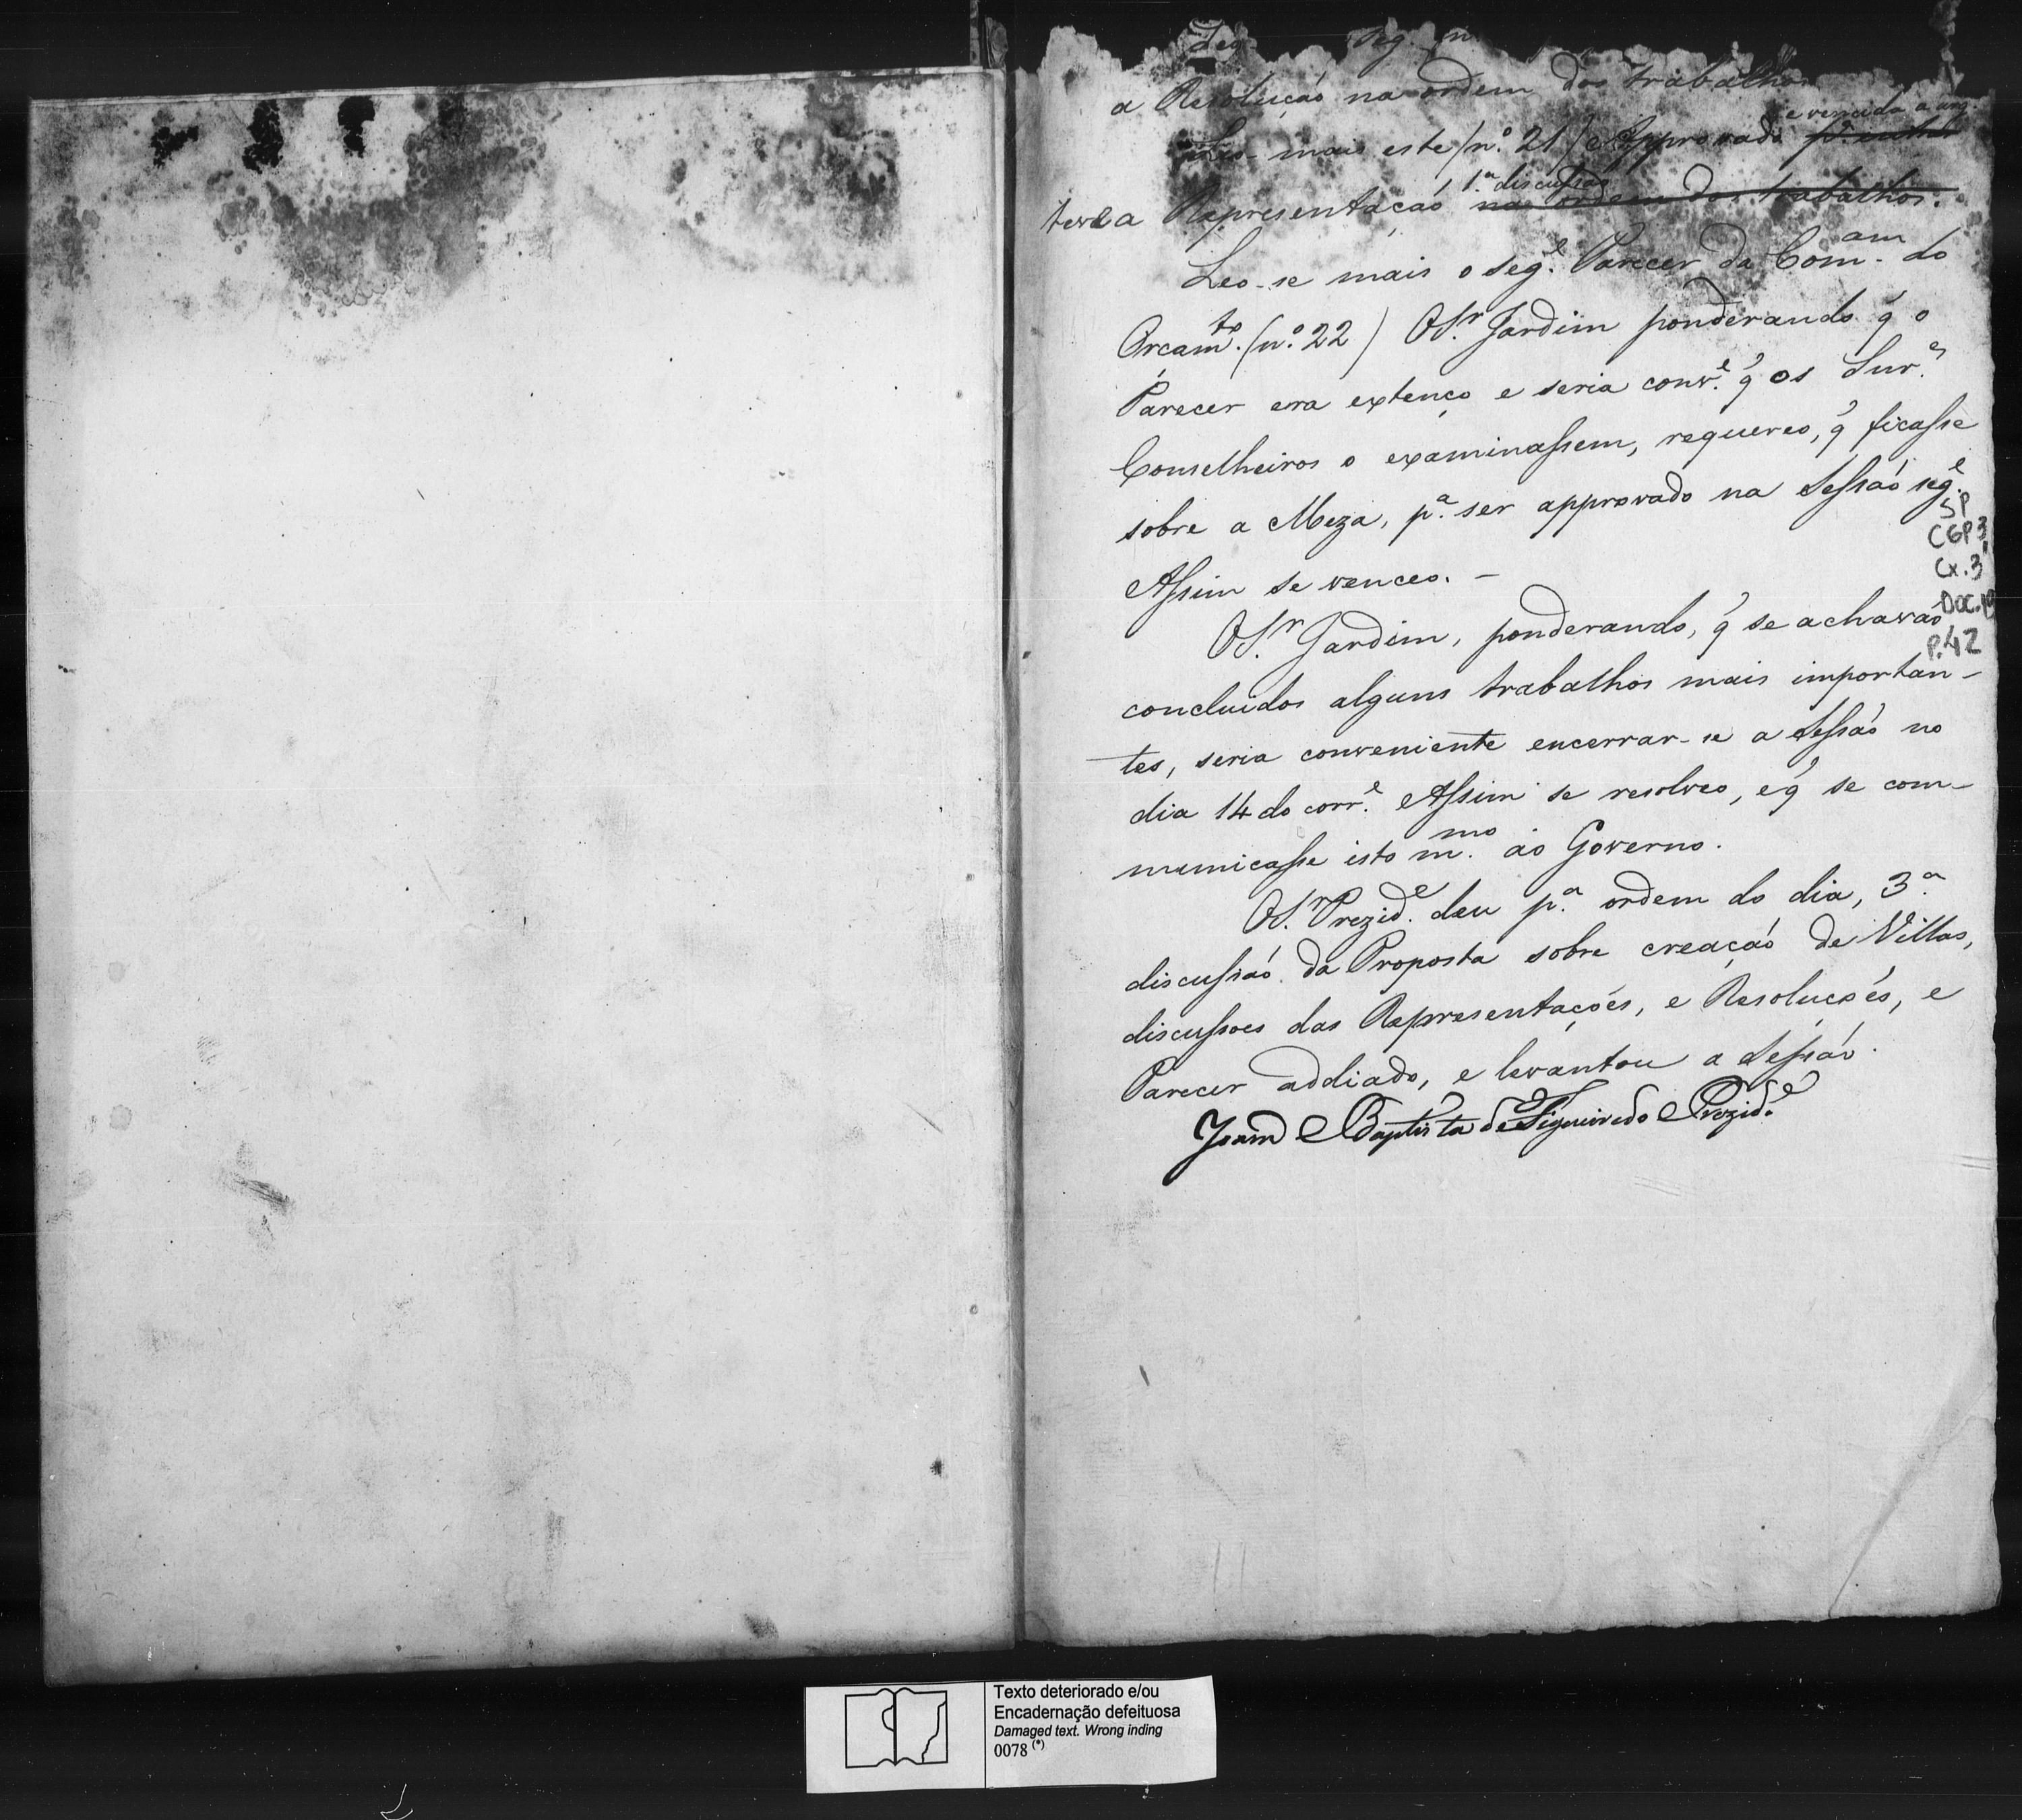 a Resolução na ordem dos trabalhos
e vencida a urg.
Leo-se mais este (nº. 21) Approvado
1.ª discussão
teve a Representação na ordem dos trabalhos.
Leo-se mais o seg.e Parecer da Com.am do
Orçam.to (nº. 22) O S.r Jardim ponderando q̃ o
Parecer era extenço e seria conv.e q̃ os Snr.es
Conselheiros o examinassem, requereo, q̃ ficasse
sobre a Meza, p.a ser approvado na Sessão seg.e
Assim se venceo. -
O S.r Jardim, ponderando, q̃ se achavão
concluidos alguns trabalhos mais importan-
tes, seria conveniente encerrar-se a Sessão no
dia 14 do corr.e Assim se resolveo, e q̃ se com-
municasse isto m.mo ao Governo.
O S.r Prezid.e deu p.a ordem do dia, 3.a
discussão da Proposta sobre creação de Villas,
discussoes das Representações, e Resoluções, e
Parecer addiado, e levantou a Sessão.
Joam Baptista de Figueiredo Prezid.e
SP
CGP3
Cx.3
DOC.19
P.42
Texto deteriorado e/ou
Encadernação defeituosa
Damaged text. Wrong inding
0078 (*)